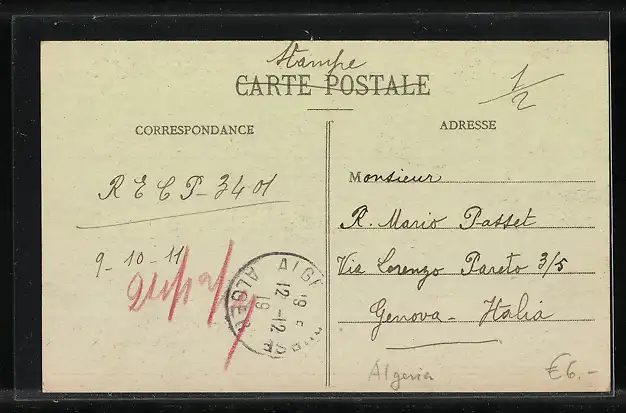 Stampe
CARTE POSTALE
1/2
CORRESPONDANCE
RECP-3401
9-10-11
ALGER
12-12
19
ADRESSE
Monsieur
R. Mario Passet
Via Lorenzo Pareto 3/5
Genova - Italia
Algeria
€6.-